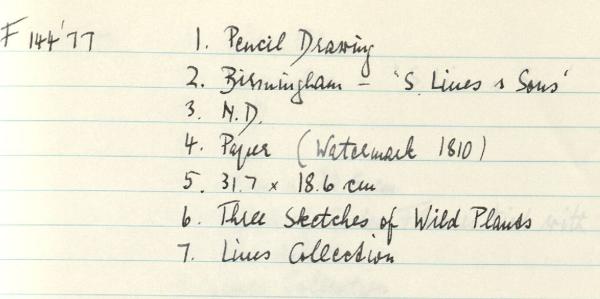 F 144'77 1. Pencil Drawing
2. Birmingham - 'S. Lines & Sons'
3. N.D.
4. Paper (Watermark 1810)
5. 31.7 x 18.6 cm
6. Three Sketches of Wild Plants
7. Lines Collection